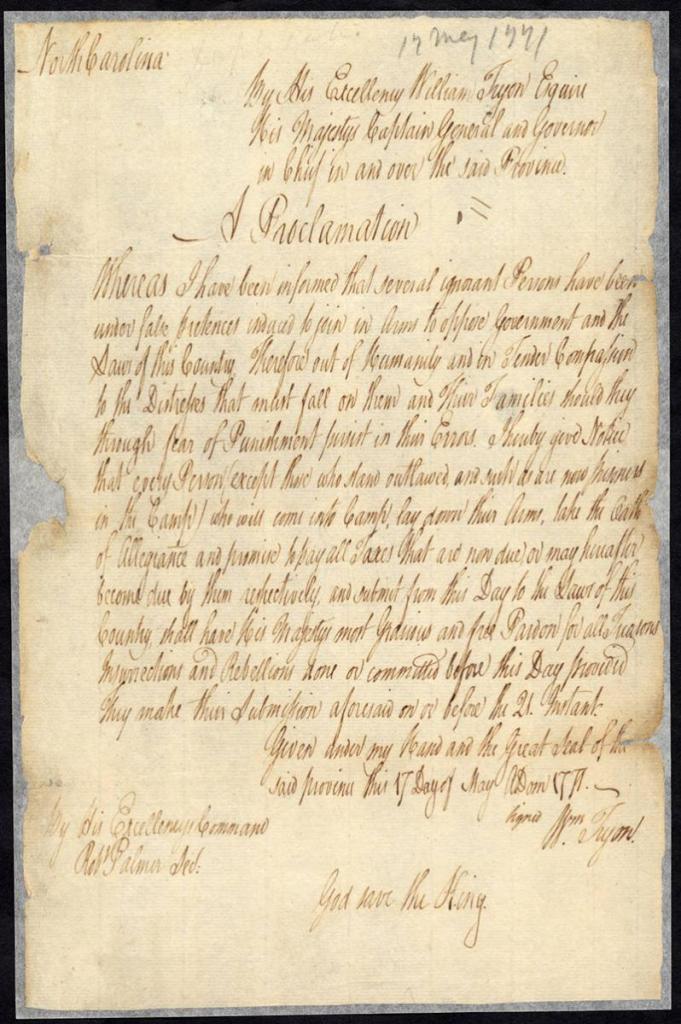 17 May 1771
North Carolina
By His Excellency William Tryon Esquire
His Majestys Captain General and Governor
in Chief in and over the said Province.
A Proclamation
Whereas I have been informed that several ignorant Persons have been
under false pretences induced to join in Arms to oppose Government and the
Laws of this Country, Therefore out of Humanity and in Tender Compassion
to the Distresses that must fall on them and their Families should they
through fear of Punishment persist in their Errors. I hereby give Notice
that every Person (except those who stand outlawed, and such as are now prisoners
in the Camp) who will come into Camp, lay down their Arms, take the Oath
of Allegiance and promise to pay all Taxes that are now due, or may hereafter
become due by them respectively, and submit from this Day to the Laws of this
Country, shall have His Majestys most Gracious and free Pardon for all Treasons
Insurrections and Rebellions done or committed before this Day provided
they make their Submission aforesaid on or before the 21. Instant.
Given under my Hand and the Great Seal of the
said province this 17 Day of May ADom 1771.
signed Wm. Tryon.
By His Excellencys Command
Robt. Palmer Sec:
God save the King.